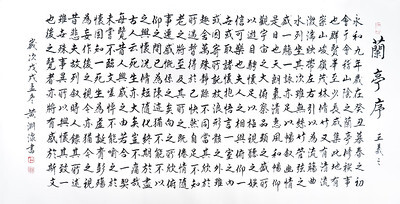 蘭亭序 王羲之
永和九年歲在癸丑暮春之初
會于會稽山陰之蘭亭修禊事
也群賢畢至少長咸集此地有
崇山峻領茂林修竹又有清流
激湍映帶左右引以為流觴曲
水列坐其次雖無絲竹管弦之
盛一觴一詠亦足以暢敘幽情
是日也天朗氣清惠風和暢仰
觀宇宙之大俯察品類之盛所
以遊目騁懷足以極視聽之娛
信可樂也夫人之相與俯仰一世
或取諸懷抱悟言一室之內
或因寄所託放浪形骸之外雖
趣舍萬殊靜躁不同當其欣於
所遇暫得於己快然自足不知
老之將至及其所之既倦情隨
事遷感慨係之矣向之所欣俯
仰之間已為陳跡猶不能不以
之興懷況修短隨化終期於盡
古人云死生亦大矣豈不痛哉
每覽昔人興感之由若合一契
未嘗不臨文嗟悼不能喻之於
懷固知一死生為虛誕齊彭殤
為妄作後之視今亦猶今之視
昔悲夫故列敘時人錄其所述
雖世殊事異所以興懷其致一
也後之覽者亦將有感於斯文
歲次戊戌 黃 書